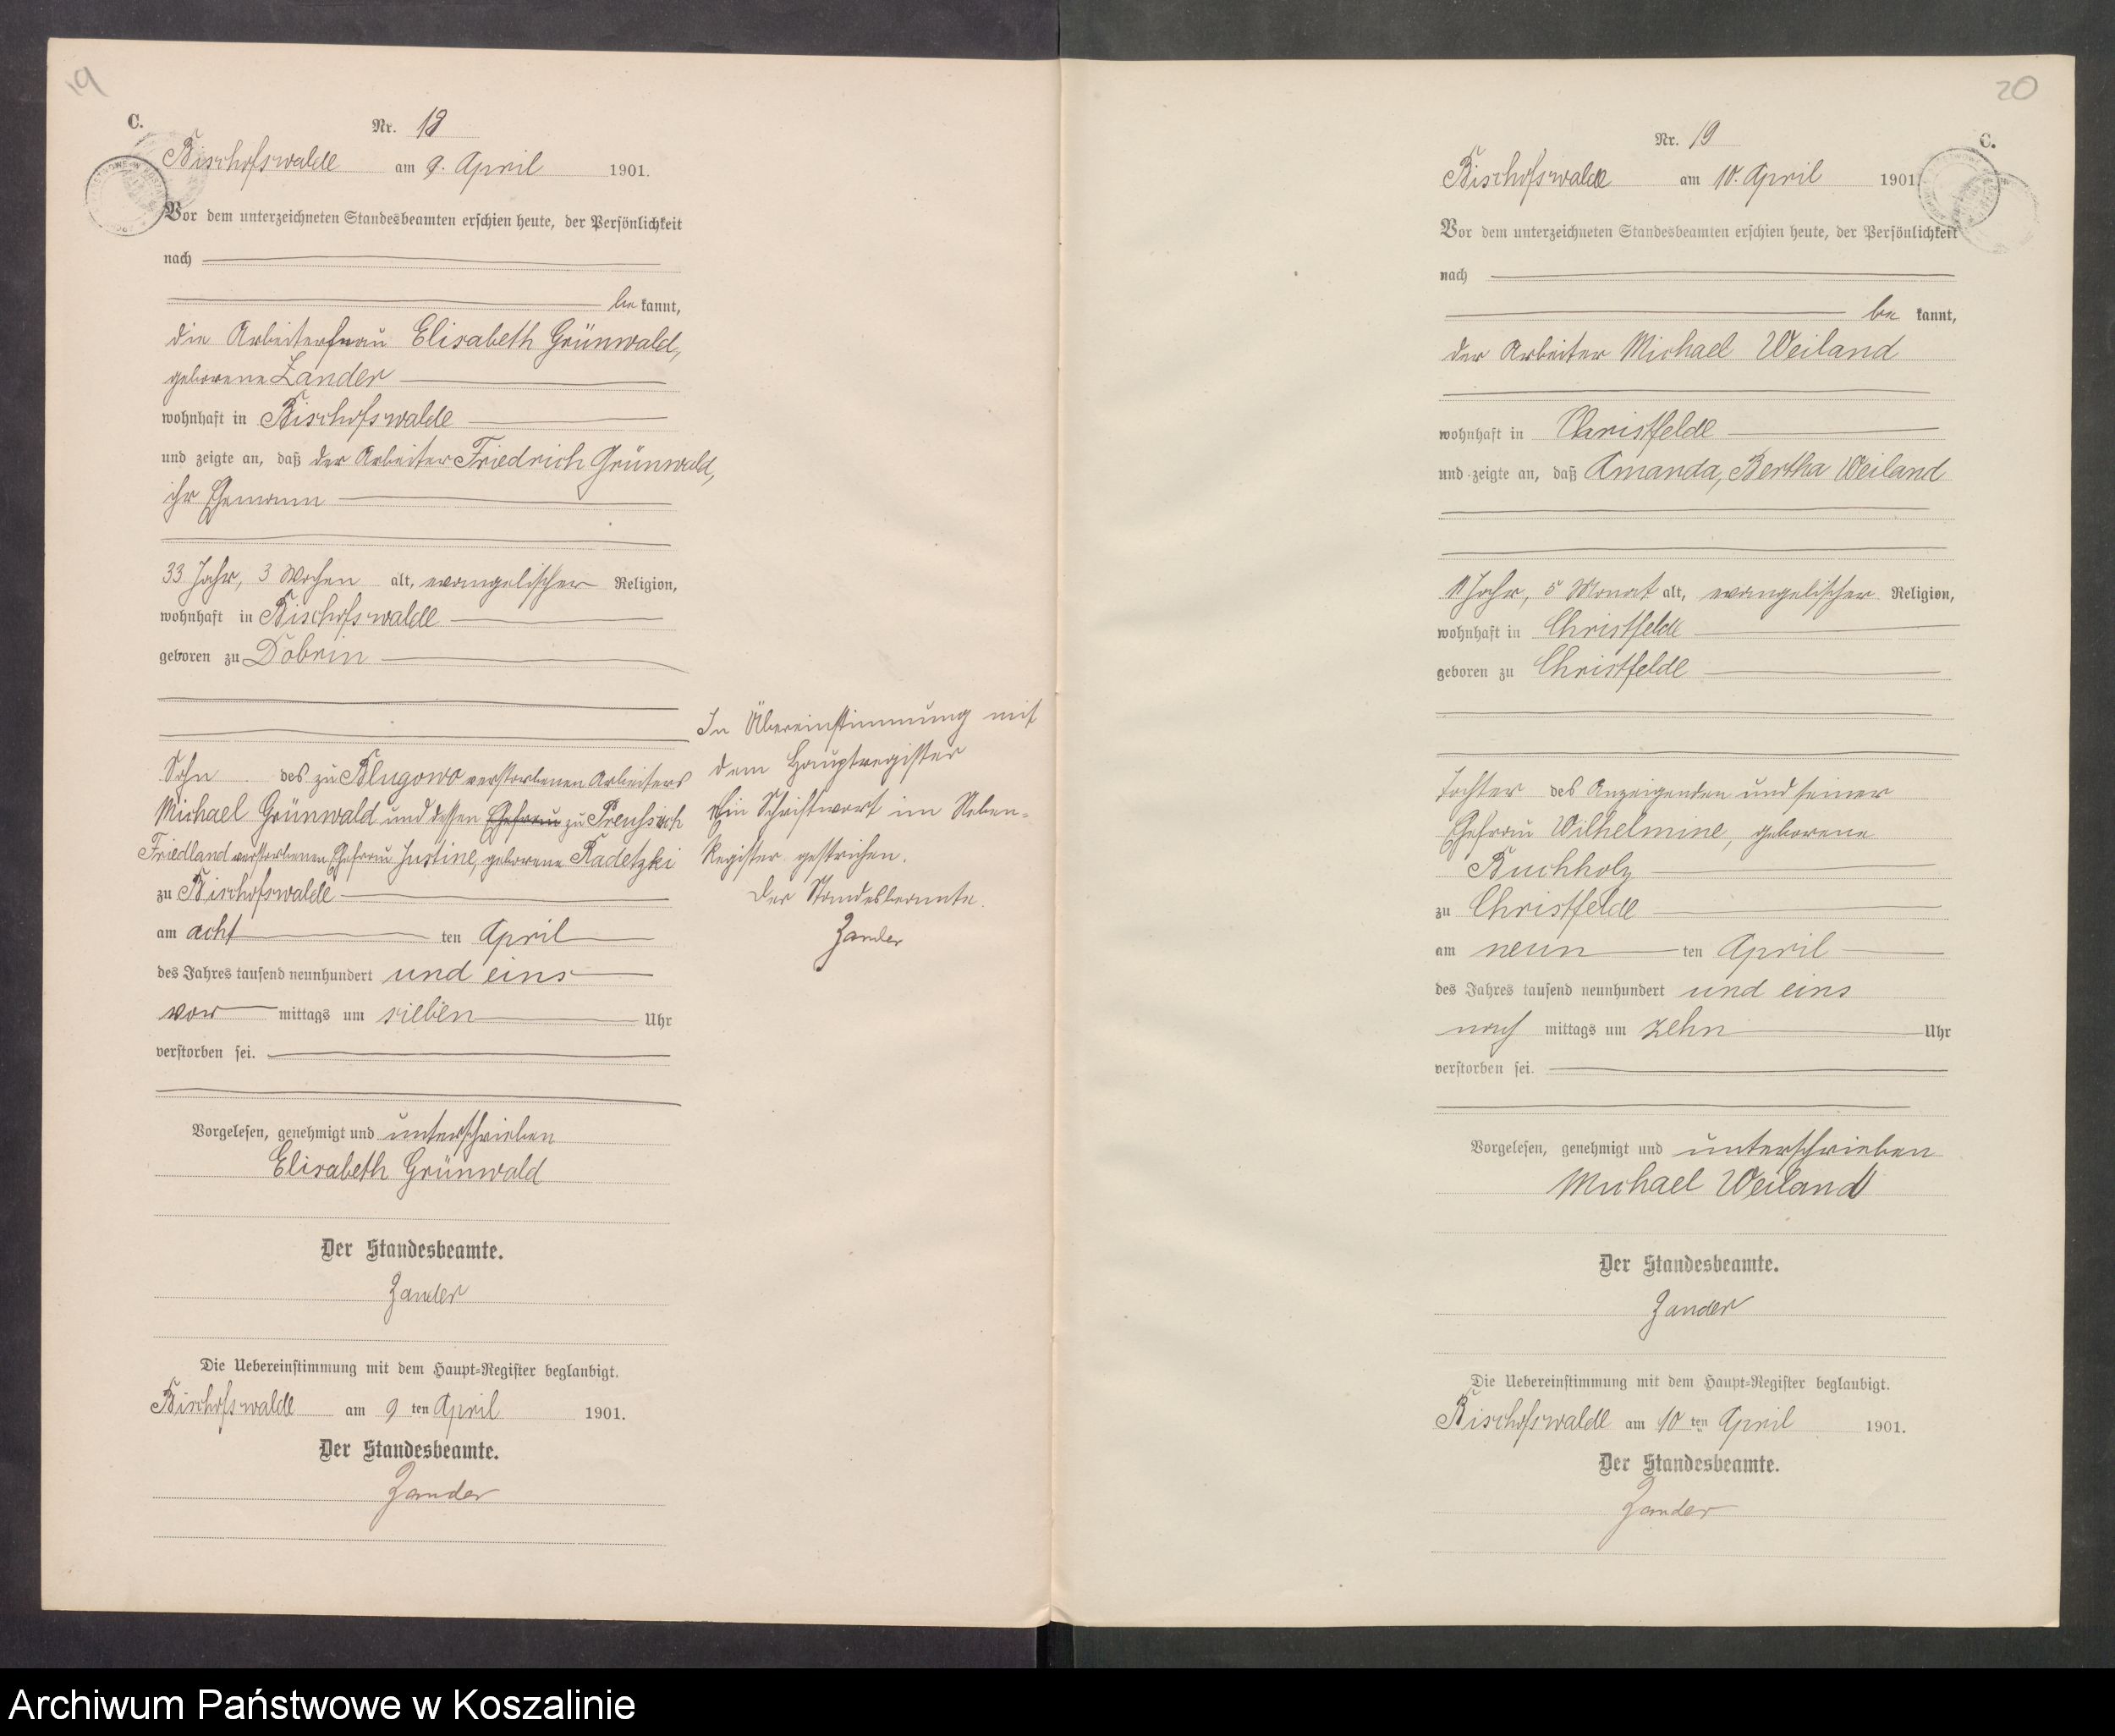 19
C.
Nr. 18
Bischofswalde am 9. April 1901.
Vor dem unterzeichneten Standesbeamten erschien heute, der Persönlichkeit
nach
be kannt,
die Arbeiterfrau Elisabeth Grünwald,
geborene Zander
wohnhaft in Bischofswalde
und zeigte an, daß der Arbeiter Friedrich Grünwald,
ihr Ehemann
33 Jahr, 3 Wochen alt, evangelischer Religion,
wohnhaft in Bischofswalde
geboren zu Dobrin
Sohn des zu Blugowo verstorbenen Arbeiters
Michael Grünwald und dessen Ehefrau zu Preusisch
Friedland verstorbenen Ehefrau Justine, geborene Radetzki
zu Bischofswalde
am acht ten April
des Jahres tausend neunhundert und eins
vor mittags um sieben Uhr
verstorben sei.
Vorgelesen, genehmigt und unterschrieben
Elisabeth Grünwald
Der Standesbeamte.
Zander
Die Uebereinstimmung mit dem Haupt-Register beglaubigt.
Bischofswalde am 9 ten April 1901.
Der Standesbeamte.
Zander
In Übereinstimmung mit
dem Hauptregister
Ein Schriftwort im Neben-
Register gestrichen.
Der Standesbeamte.
Zander
20
C.
Nr. 19
Bischofswalde am 10. April 1901
Vor dem unterzeichneten Standesbeamten erschien heute, der Persönlichkeit
nach
be kannt,
der Arbeiter Michael Weiland
wohnhaft in Christfelde
und zeigte an, daß Amanda, Bertha Weiland
1 Jahr, 5 Monat alt, evangelischer Religion,
wohnhaft in Christfelde
geboren zu Christfelde
Tochter des Anzeigenden und seiner
Ehefrau Wilhelmine, geborene
Buchholz
zu Christfelde
am neun ten April
des Jahres tausend neunhundert und eins
nach mittags um zehn Uhr
verstorben sei.
Vorgelesen, genehmigt und unterschrieben
Michael Weiland
Der Standesbeamte.
Zander
Die Uebereinstimmung mit dem Haupt-Register beglaubigt.
Bischofswalde am 10 ten April 1901.
Der Standesbeamte.
Zander
Archiwum Państwowe w Koszalinie